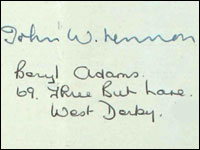 John W. Lennon
Beryl Adams.
69. Three Butt Lane.
West Derby.